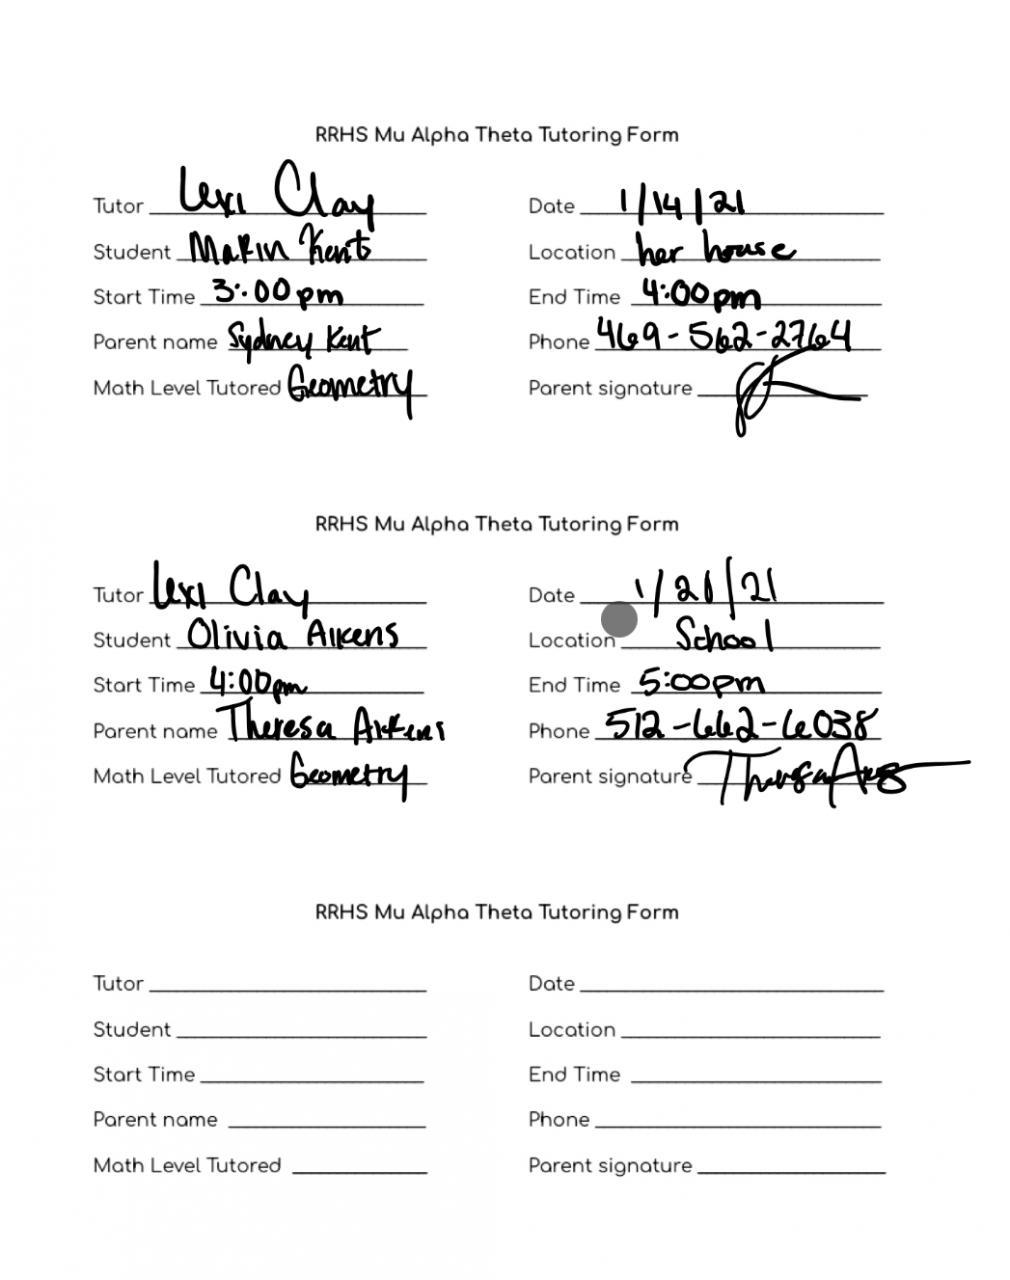 RRHS Mu Alpha Theta Tutoring Form
Tutor Lexi Clay Date 1/14/21
Student Makin Kent Location her house
Start Time 3:00pm End Time 4:00pm
Parent name Sydney Kent Phone 469-562-2764
Math Level Tutored Geometry Parent signature
RRHS Mu Alpha Theta Tutoring Form
Tutor Lexi Clay Date 1/21/21
Student Olivia Aikens Location School
Start Time 4:00pm End Time 5:00pm
Parent name Theresa Aikens Phone 512-662-6038
Math Level Tutored Geometry Parent signature
RRHS Mu Alpha Theta Tutoring Form
Tutor Date
Student Location
Start Time End Time
Parent name Phone
Math Level Tutored Parent signature